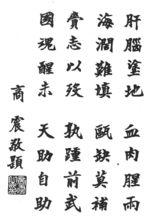 肝腦塗地 血肉腥雨
海濶難填 甌缺莫補
賫志以歿 孰踵前武
國魂醒未 天助自助
商震敬題